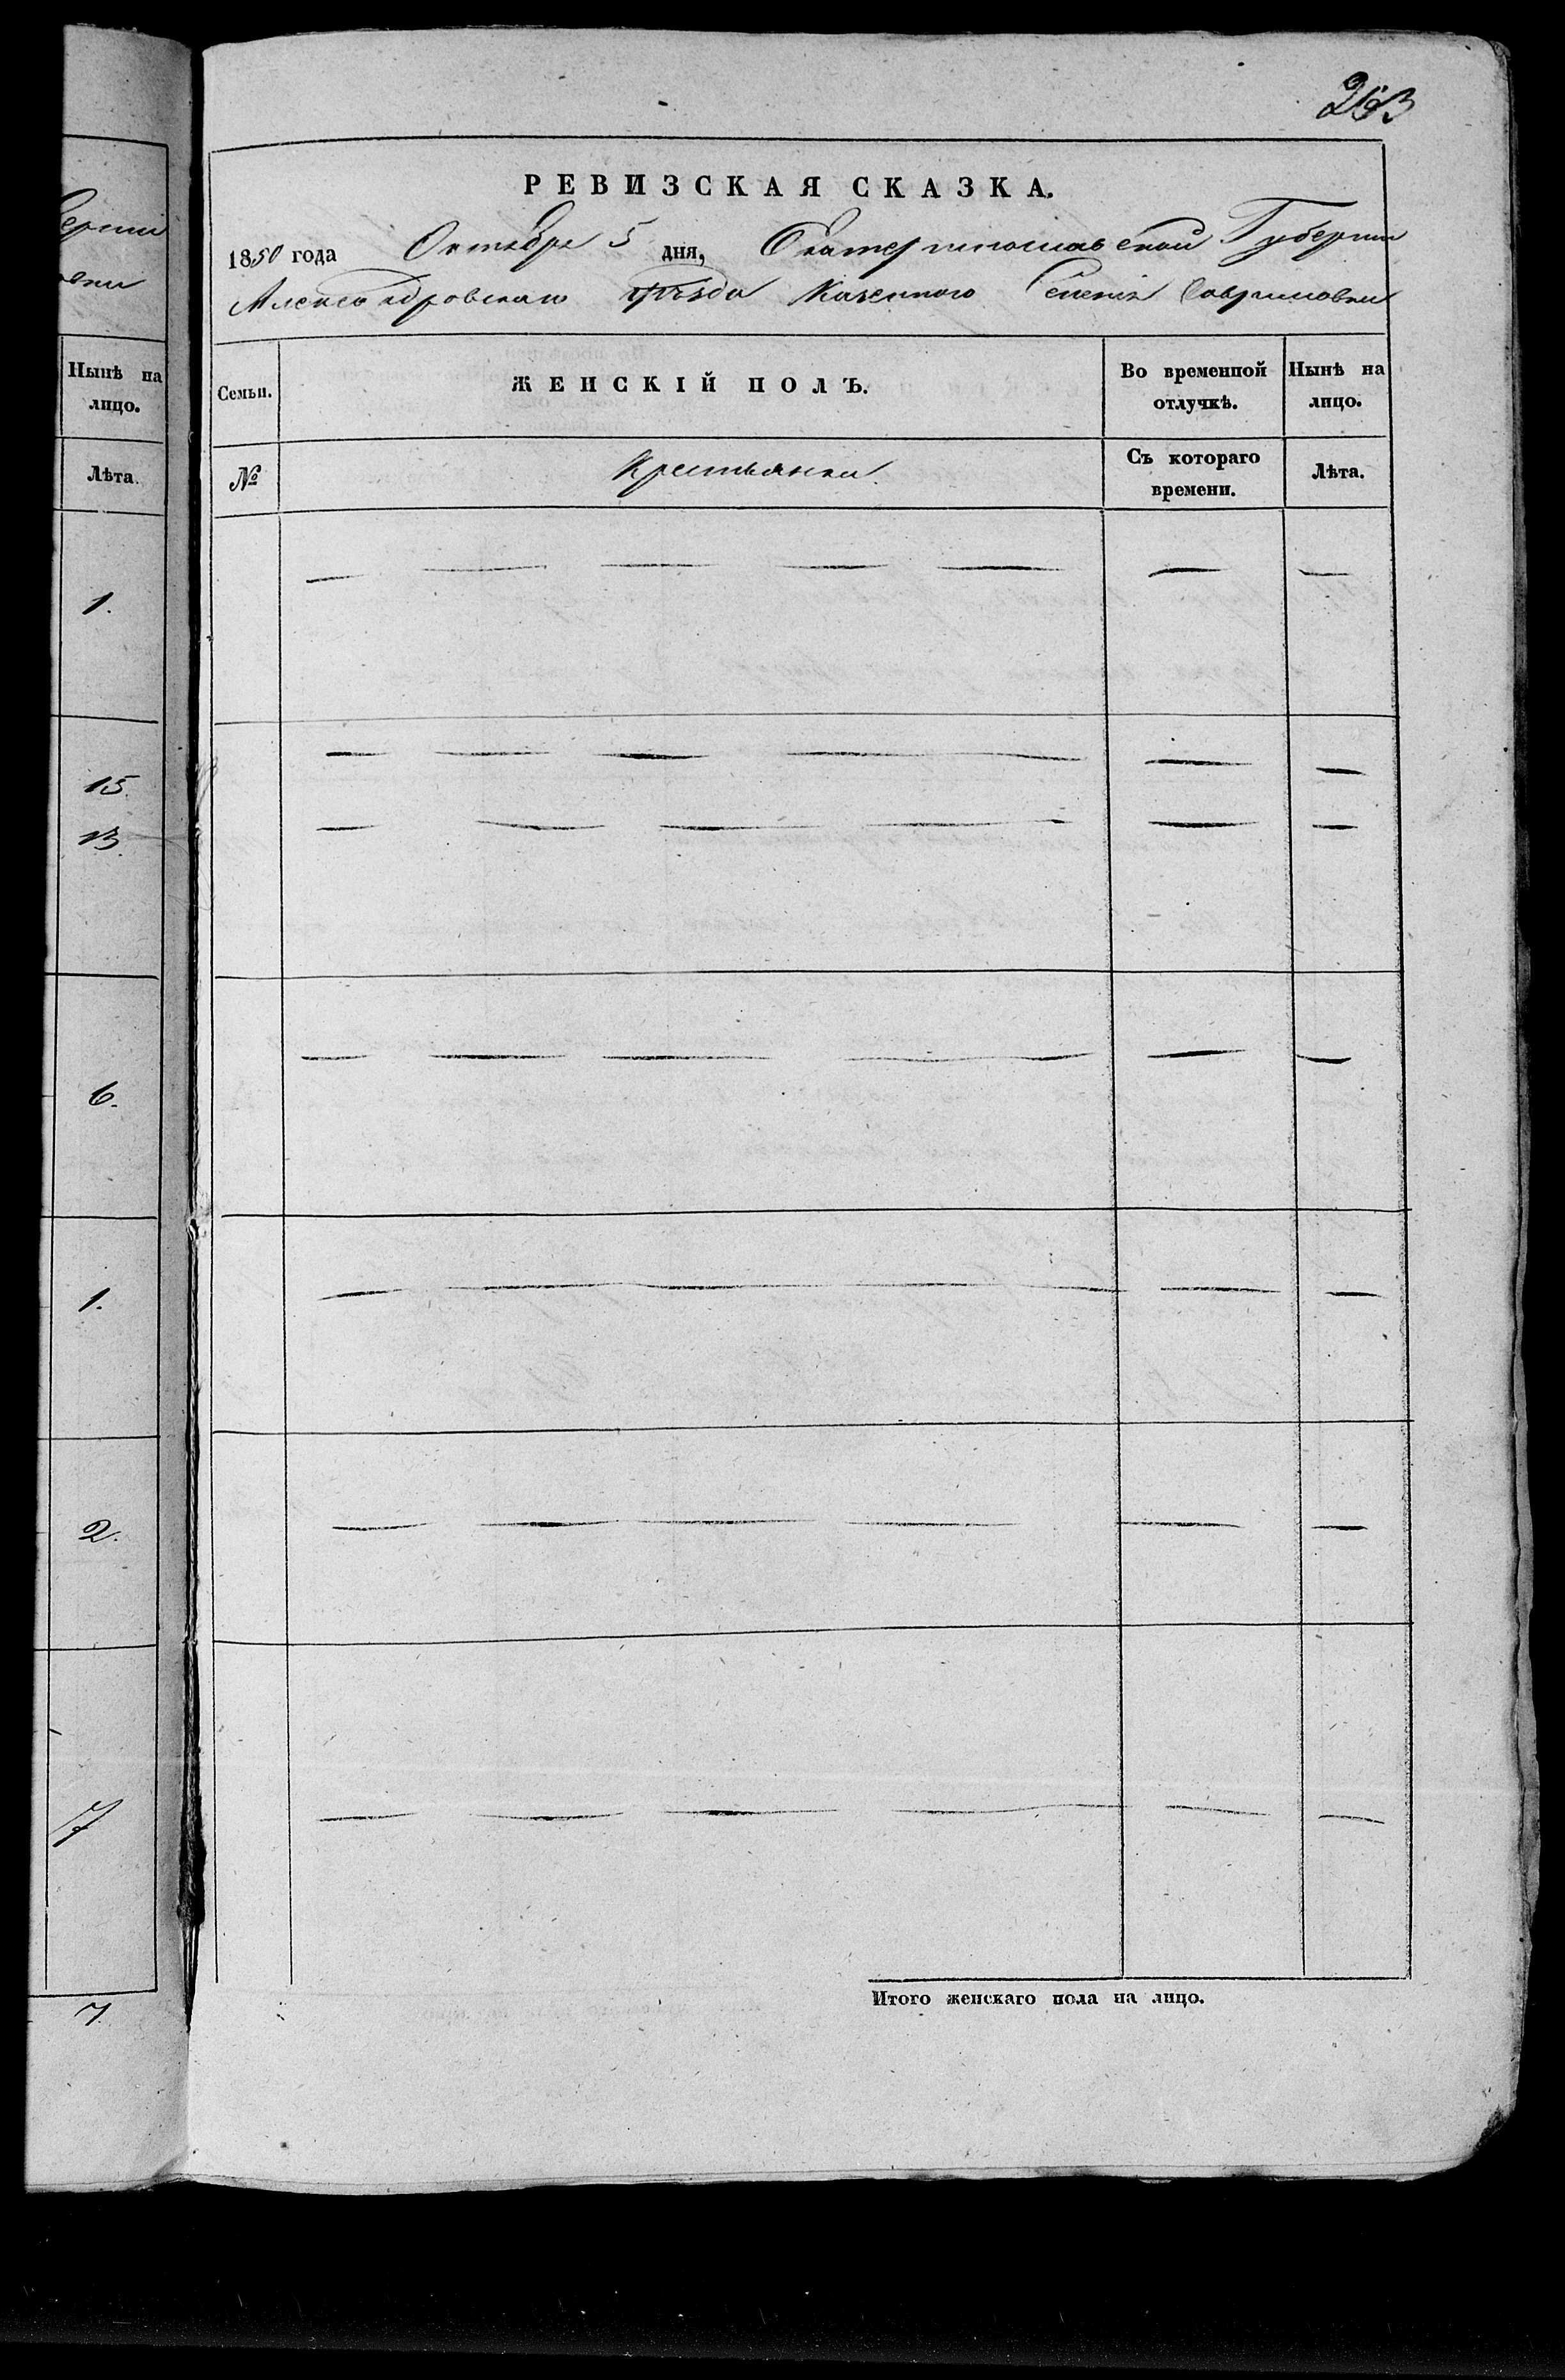 РЕВИЗСКАЯ СКАЗКА.
1850 года Октября 5 дня, Екатеринославской Губернии
Александровскаго уѣзда Казенного Селенія Гавриловки
Нынѣ на лицо.
Лѣта.
1.
15.
13.
6.
1.
2.
7
7.
Семьи.
ЖЕНСКІЙ ПОЛЪ.
Во временной отлучкѣ.
Нынѣ на лицо.
№
Крестьянки.
Съ котораго времени.
Лѣта.
Итого женскаго пола на лицо.